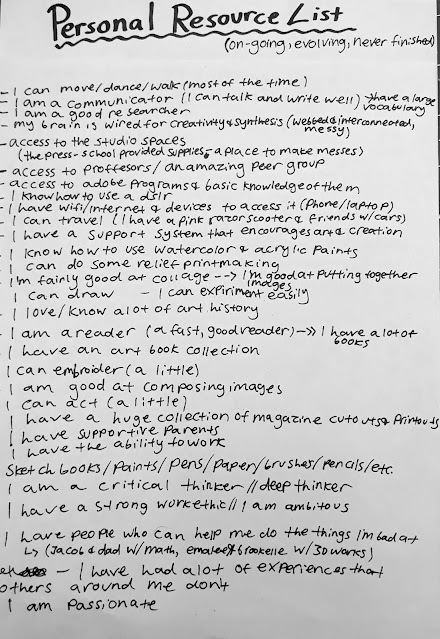 Personal Resource List
(on-going, evolving, never finished)
- I can move/dance/walk (most of the time)
- I am a communicator (I can talk and write well) → have a large vocabulary
- I am a good researcher
- my brain is wired for creativity & synthesis (webbed & interconnected, messy)
- access to the studio spaces
(the press - school provided supplies, a place to make messes)
- access to proffesors / an amazing peer group
- access to adobe programs & basic knowledge of them
- I know how to use a dslr
- I have wifi/internet & devices to access it (Phone/laptop)
- I can travel (I have a pink razor scooter & friends w/ cars)
- I have a support system that encourages art & creation
- I know how to use watercolor & acrylic paints
- I can do some relief printmaking
- I'm fairly good at collage --> I'm good at putting together images
- I can draw - I can expiriment easily
- I love/know alot of art history
- I am a reader (a fast, good reader) ->> I have a lot of books
- I have an art book collection
I can embroider (a little)
- I am good at composing images
- I can act (a little)
- I have a huge collection of magazine cutouts & printouts
- I have supportive parents
- I have the ability to work
sketchbooks/paints/pens/paper/brushes/pencils/etc.
- I am a critical thinker // deep thinker
- I have a strong work ethic // I am ambitous
I have people who can help me do the things I'm bad at
↳ (Jacob & dad w/ math, & brookelle w/ 3D works)
- I have had alot of experiences that
others around me don't
I am passionate